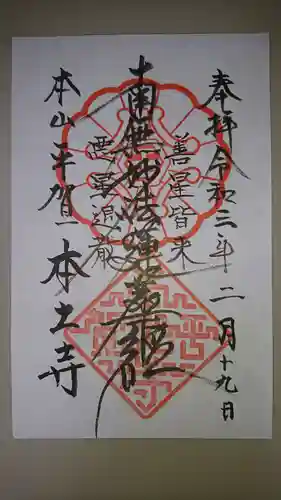 奉拝 令和三年 二月十九日
善星皆来
南無妙法蓮華経
悪星退散
本山 平賀 本土寺